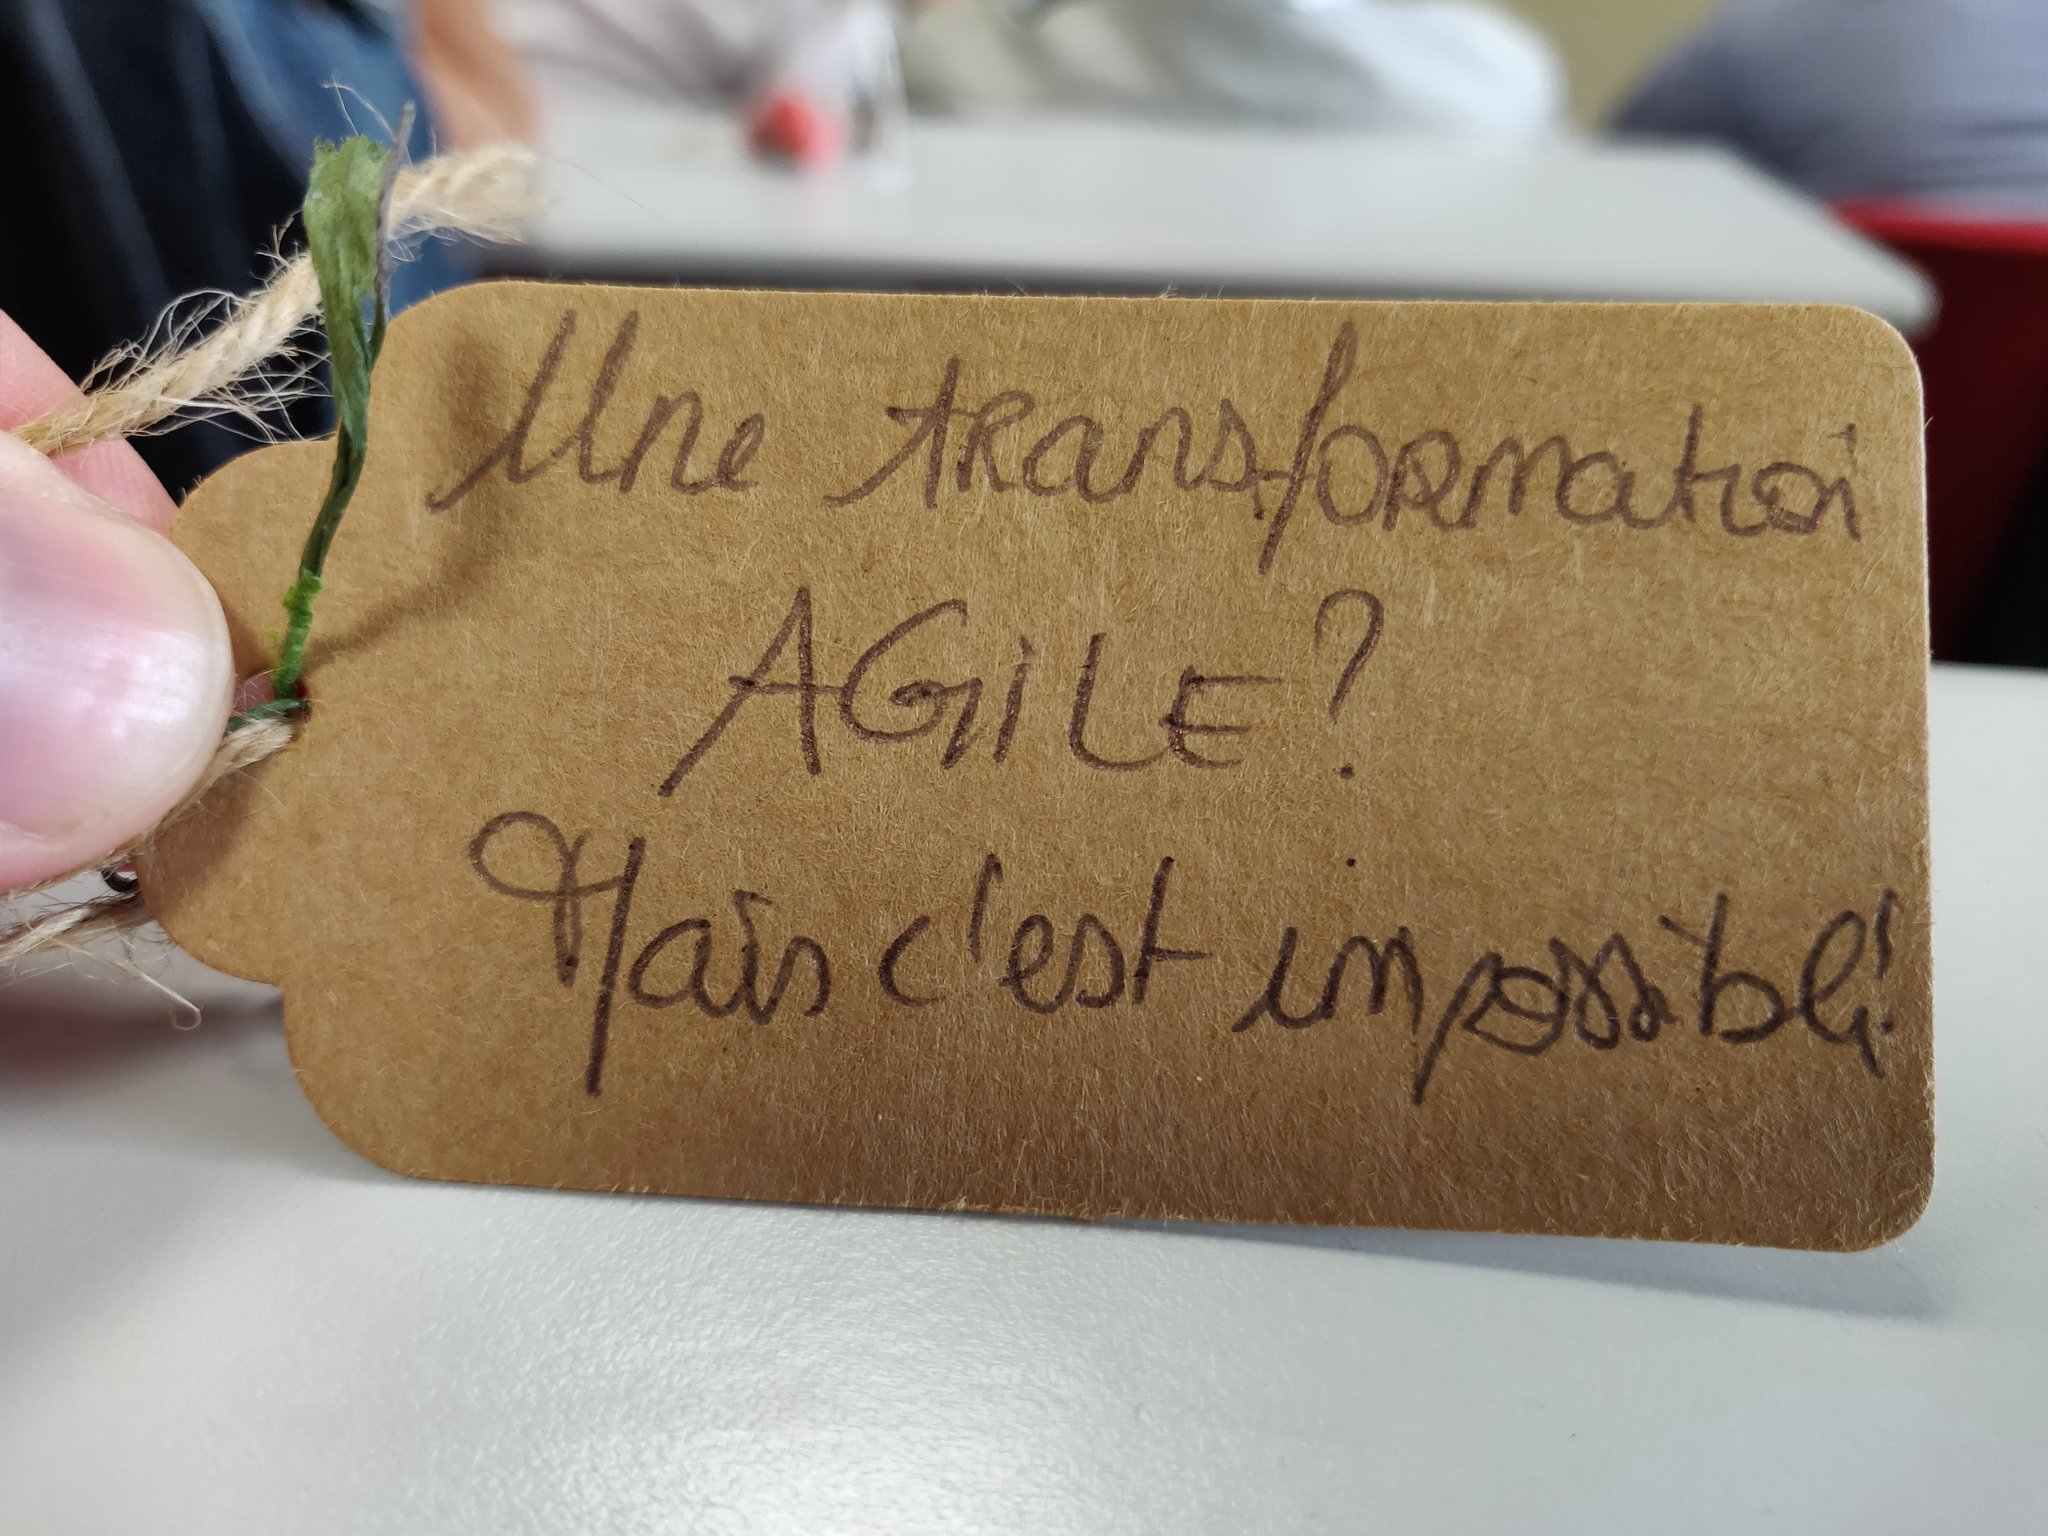 Une transformation
AGiLE?
Mais c'est impossible!